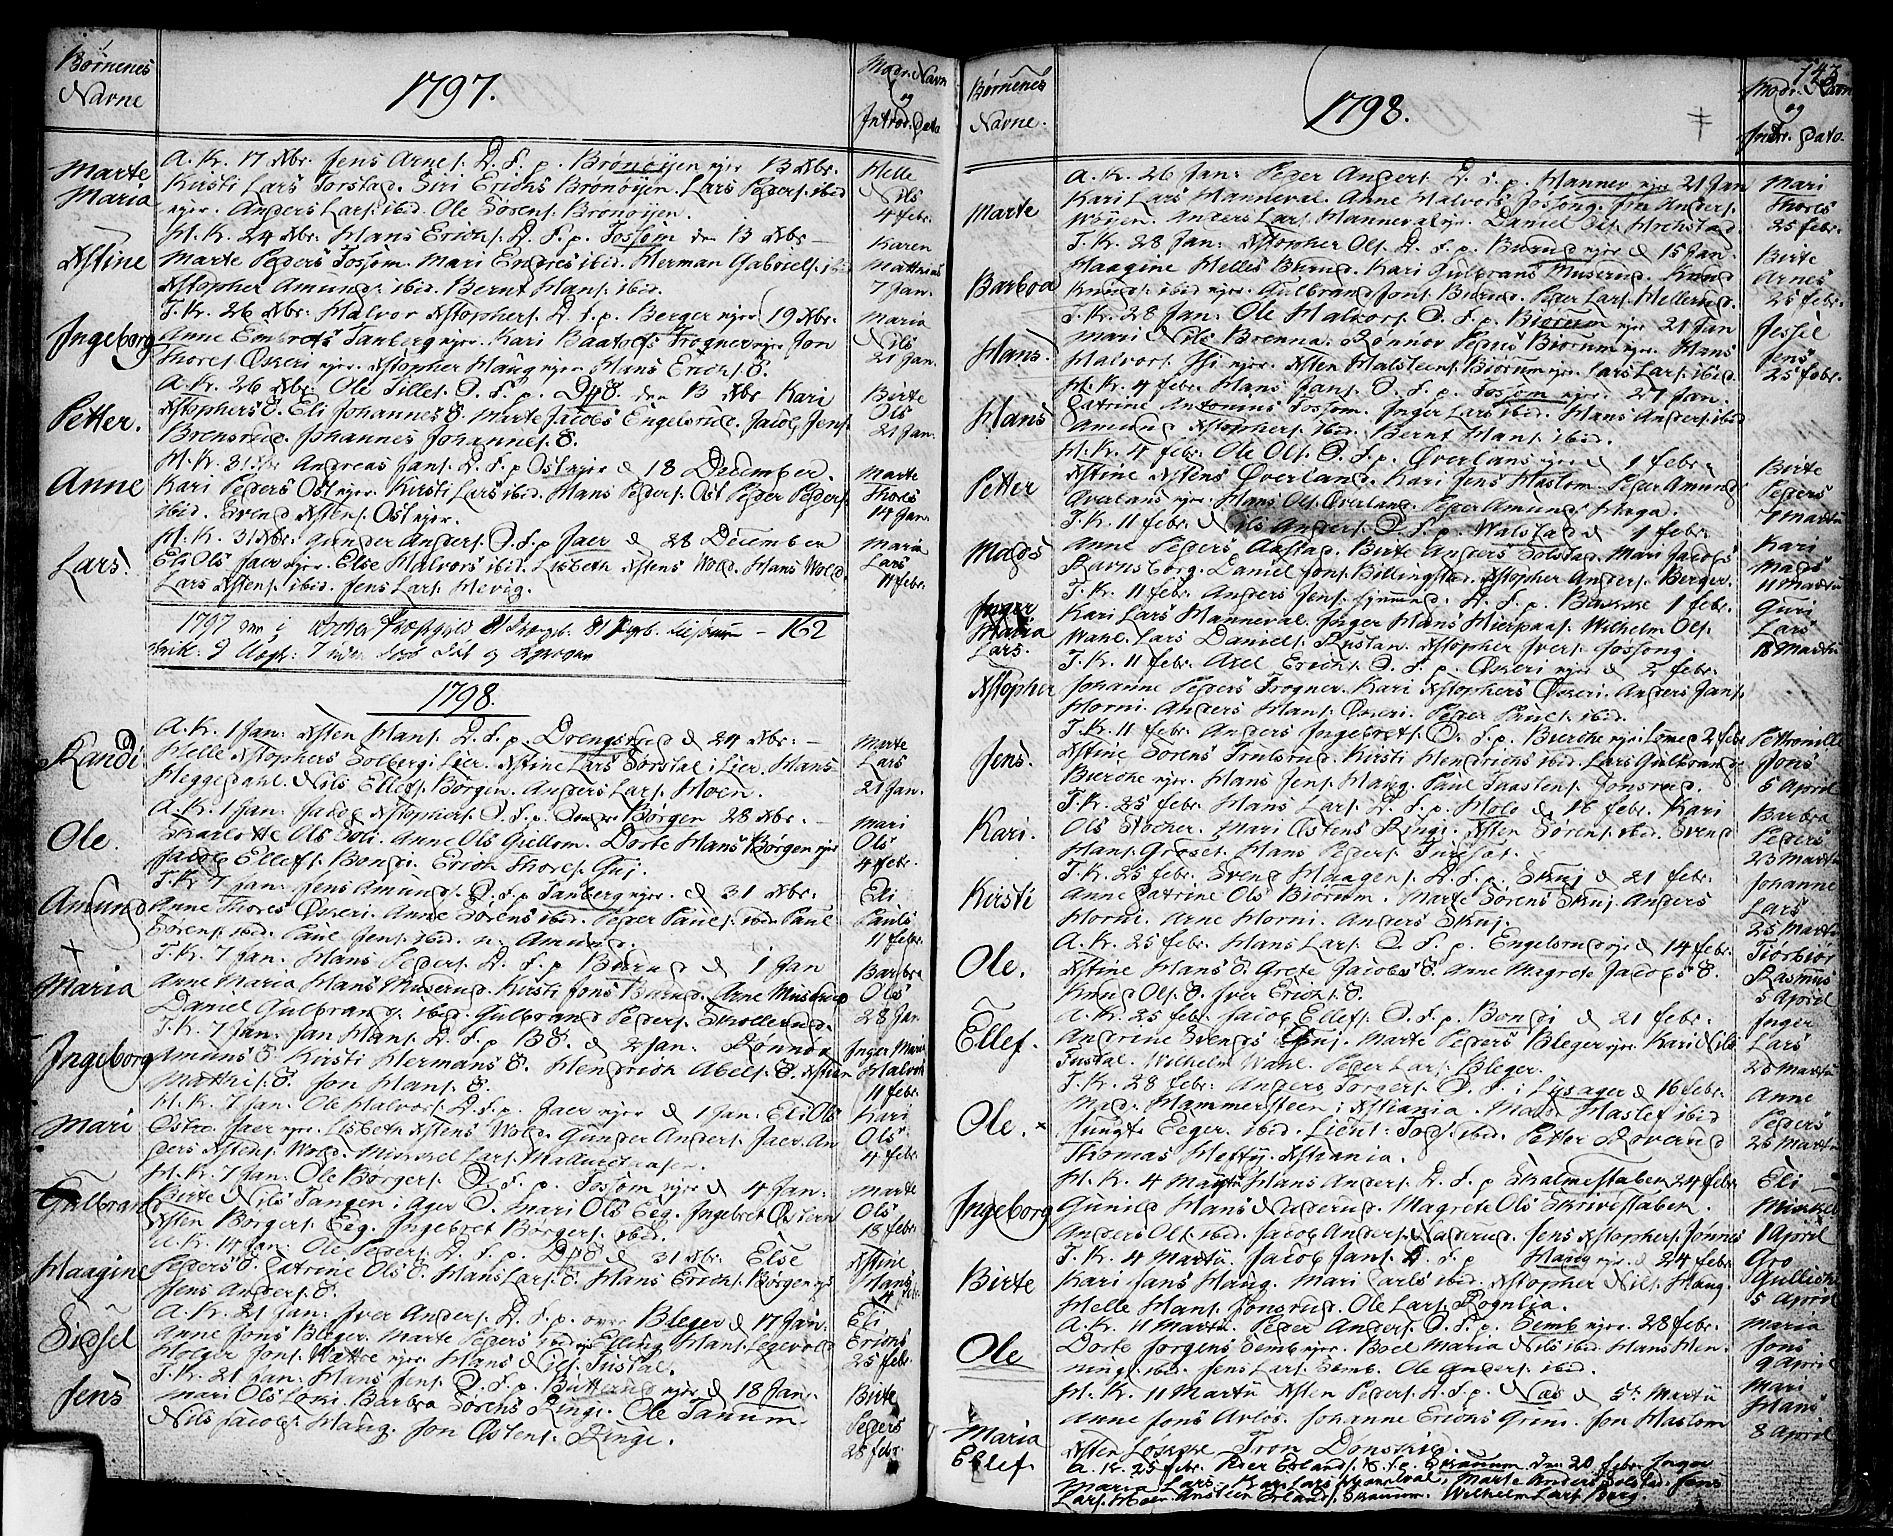 Børnenes
Navne
1797.
Modr. Navn
og
Introd. Dato
Marte
Maria
A. K. 17 Xbr. Jens Arnes. D. f. p. Brønøijen njer 13 Xbr.
Kirsti Lars Torstad. Siri Erichs Brønøijen. Lars Peders. ibid
njer. Anders Lars. ibid. Ole Sørens. Brønøijen.
Helle
Nils
4 febr.
Xstine
H. K. 24 Xbr. Hans Erichs. D. f. p. Fossom den 13 Xbr.
Marte Peders Fossom. Mari Endres ibid. Herman Gabriels. ibid
Xstopher Amunds. ibid. Bernt Hans. ibid.
Karen
Matthias
7 Jan.
Ingeborg
T. K. 26 Xbr. Halvor Xstophers. D. f. p. Berger njer 19 Xbr.
Anne Embrets Tanberg njer. Kari Baarols Frogner njer Jon
Thores. Øskeri njer. Xstopher Haug njer Hans Erichs. &.
Maria
Nils
21 Jan.
Petter.
A. K. 26 Xbr. Ole Tilles. D. f. p. den 13 Xbr Kari
Xstophers &. Eli Johannes &. Marte Jacobs Engelsrud. Jacob Jens.
Brensrud. Johannes Johannes. &.
Birte
Ols
21 Jan.
Anne
H. K. 31 Xbr Andreas Jans. D. f. p Ost njer d 18 December.
Kari Peders Ost njer. Kirsti Lars ibid. Hans Peders. Ost Peder Peders.
ibid. Evend Xstens. Ost njer.
Marte
Thores
14 Jan.
Lars.
H. K. 31 Xbr. Gunder Anders. D. f. p Jaer d 28 December
Eli Ols Jaer njer. Else Halvors ibid. Lisbeth Xstens Wold. Hans Wold.
Lars Xstens. ibid. Jens Lars. Hevig.
Maria
Lars
11 febr.
1797 162
1798.
Randi
A. K. 1 Jan: Xsten Hans. D. f. p. Drengsrud d 24 Xbr.
Helle Xstophers Solberg i Lier. Xstine Lars Torstal i Lier. Hans
Heggedahl. Nils Ellefs. Børgen. Anders Lars. Hoen.
Marte
Lars
21 Jan.
Ole.
A. K. 1 Jan: Jacob Xstophers. D. f. p. Børgen 28 Xbr.
Charlotte Ols Soli. Anne Ols Giellom. Dorte Hans Børgen njer
Jacob Ellefs. Bondi. Erich Thores. Gui.
Mari
Ols
4 febr.
Amund
T. K. 7 Jan. Jens Amunds. D. f. p Tanberg njer. d 31 Xbr.
Anne Thores Øskeri. Anne Sørens ibid. Peder Pauls. ibid Paul
Sørens. ibid. Paul Jens. ibid. n: Amund.
Eli
Pauls
11 febr.
+
Maria
T. K. 7 Jan. Hans Peders. D. f. p Burud d 1 Jan
Anne Maria Hans Muserud. Kirsti Jons Burud. Arne Muserud
Daniel Gulbrands. ibid. Gulbrand Peders. Skollerud.
Barbra
Ols
28 Jan
Ingeborg
T. K. 7 Jan: Jan Hans. D. f. p B&. d 2 Jan. Rønnou
Amunds &. Kirsti Hermans &. Hendrich Abels. &. Xsten
Matthis. &. Jon Hans. &.
Inger Marie
Halvors
11 febr.
Mari
H. K. 7 Jan. Ole Halvors. D. f. p. Jaer njer d 1 Jan: Eli Ols
Østre Jaer njer. Lisbeth Xstens Wold. Gunder Anders. Jaer. An
ders Xstens. Wold. Mikkel Lars. Malluretaasen.
Kari
Ols
4 febr.
Gulbrand
H. K. 7 Jan. Ole Børgers. D. f. p. Fossom njer d 4 Jan:
Birte Nils Tangen i Ager D. Mari Ols Eeg. Ingebret Østern
Xsten Børgers. Eeg. Ingebret Børgers. ibid.
Marte
Ols
18 febr.
Haagine
A. K. 14 Jan: Ole Peders. D. f. p. D&. d 31 Xbr. Else
Peders &. Catrine Ols &. Hans Lars. &. Hans Erichs. Børgen njer
Jens Anders. &.
Xstine
Hans
4 febr.
Sidsel
A. K. 21 Jan: Iver Anders. D. f. p. Bleger d 17 Jan.
Anne Jons Bleger. Marte Peders ibid. Elling Hans. Legevold
Holger Jons. Wattre njer. Hans Nils. Tustal.
Eli
Erichs
25 febr.
Jens
T. K. 21 Jan. Hans Jens. D. f. p. Butterud njer d 18 Jan.
Mari Ols Loxi. Barbra Sørens Ringi. Ole Tanum
Nils Jacobs. Haug. Jon Østens. Ringe.
Birte
Peders
28 febr.
Børnenes
Navne.
1798.
143
Modr. Navn
og
Indr. Dato.
Marte
A. K. 26 Jan: Peder Anders. D. f. p. Hanner njer 21 Jan
Kari Lars Hanneval. Anne Halvors Jossong. Jfr Anders.
Wøyen. Anders Lars. Hanneval njer. Daniel Ols. Hrenstad.
Mari
Thores
25 febr.
Barbra
T. K. 28 Jan: Xstopher Ols. D. f. p. Burud njer d 15 Jan.
Haagine Helles Burud. Kari Gulbrans Muserud. Knud
Knuds. ibid njer. Gulbrand Jons. Burud. Peder Lars. Hellerud.
Birte
Arnes
25 febr.
Hans.
T. K. 28 Jan: Ole Halvors. D. f. p. Biørum njer 21 Jan
Mari Nils Brenna. Rønnov Peders Biørum njer. Hans
Halvors. Thi njer. Xsten Halsteens. Biørum njer. Lars Lars. ibid.
Jessie
Jens
25 febr.
Hans
H. K. 4 febr. Hans Jans. D. f. p. Fossom njer. 27 Jan.
Catrine Antonius Fossom. Inger Lars ibid. Hans Anders. ibid
Amund Xstophers. ibid. Bernt Hans. ibid.
Petter
H. K. 4 febr. Ole Ols. D. f. p. Øverlans njer d 1 febr.
Xstine Xstens Øverland. Kari Jens Haslom. Peder Amunds
Øverlans njer. Hans Ols. Øverland. Peder Amunds. Haga.
Birte
Peders
4 Martii
Mads
T. K. 11 febr. Nils Anders. D. f. p. Walstad d 1 febr.
Anne Peders Aastad. Birte Anders Solstad. Mari Jacobs
Barnsborg. Daniel Jons. Billingstad. Xstopher Anders. Berger.
Kari
Mads
11 Martii
Inger
Maria
Lars.
T. K. 11 febr. Anders Jens. D. f. p. Bakke 1 febr.
Kari Lars Hanneval. Inger Hans Hierpaas. Wilhelm Ols.
Wahl. Lars Daniels. Rustan. Xstopher Ivers. Gossong.
Guri
Lars
18 Martii
Xstopher
T. K. 11 febr. Axel Erichs. D. f. p. Øskeri njer d 2 febr.
Johanne Peders Frogner. Kari Xstophers Øskeri. Anders Jans.
Horni. Anders Hans. Øskeri. Peder Pauls. ibid.
Jens.
T. K. 11 febr. Anders Ingebrets. D. f. p. Bierche njer i Lomed 2 febr
Xstine Sørens Trulsrud. Kirsti Hendrichs ibid. Lars Gulbrands.
Bierche njer. Hans Jens. Haug. Paul Taastens. Jonsrud.
Petronille
Jons
5 April
Kari.
T. K. 25 febr. Hans Lars. D. f. p. Holo d 16 febr. Kari
Ols Stocher. Mari Østens Ringi. Xsten Sørens. ibid. Svend
Hans. Groset. Hans Peders. Tuisset.
Barbra
Peders
23 Martii
Kirsti
T. K. 25 febr. Svend Haagens. D. f. p. Skuj d 21 febr.
Anne Catrine Ols Biørum. Marte Sørens Skuj. Anders
Horni. Arne Horni. Anders Skuj.
Johanne
Lars
25 Martii
Ole.
A. K. 25 febr. Hans Lars. D. f. p. Engelsrud njer d 14 febr.
Xstine Hans &. Grete Jacobs &. Anne Magrete Jacobs &.
Knud Ols. &. Iver Erichs. &.
Tiørbiør
Rasmus
5 April
Ellef.
A. K. 25 febr. Jacob Ellefs. D. f. p. Bondi d 21 febr.
Andrine Svends Skuj. Marte Peders Bleger njer. Kari Nils
Tustal. Wilhelm Wahl. Peder Lars. Bleger.
Inger
Lars
25 Martii
Ole. +
T. K. 28 febr. Anders Torgers. D. f. i Lysager d 16 febr.
Mad: Hammersteen i Xstiania. Mads Haslef ibid
Jungfr Eeger. ibid. Lieut: Tods. ibid. Petter Røverud
Thomas Heftij. Xstiania.
Anne
Peders
25 Martii
Ingeborg
H. K. 4 Martii Hans Anders. D. f. p Skalmestaben 24 febr
Gunild Hans Naderud. Magrete Ols Skrivestaben.
Anders Ols. ibid. Jacob Anders. Naderud. Jens Xstophers. Jønnes
Eli
Mikkel
1 April
Birte
T. K. 4 Martii Jacob Jans. D. f. p Haug njer. d 24 febr
Kari Jans Haug. Mari Carls ibid. Xstopher Nils. Haug.
Helle Hans. Jonsrud. Ole Lars. Rognlia.
Gro
Gulliche
5 April
Ole
A. K. 11 Martii. Peder Anders. D. f. p. Semb njer. 28 febr.
Dorte Jørgens Semb njer. Boel Maria Nils ibid. Hans Hen
nings. ibid. Jens Lars. Semb. Ole Gunders. ibid.
Maria
Jons
9 April
Maria
H. K. 11 Martii Xsten Peders. D. f. p. Næs d 5te Martii
Anne Jons Arlos. Johanne Erichs Grini. Jon Haslom
Xsten Løkke. Tron Donskrig.
Mari
Hans
8 April
Ellef.
A. K. 25 febr. Peder Erlands. D. f. p. Skaanum den 20 febr. Inger
Maria Lars. Kari Lars Hanneval, Marte Anders Solstad. Jens
Lars. Hoen. Ansteen Erlands. Skaanum. Wilhelm Lars. Berg.